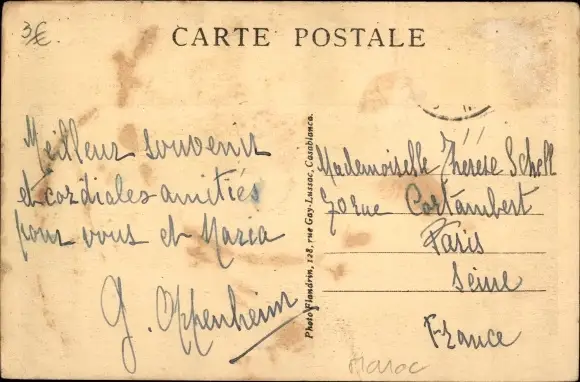 3€
CARTE POSTALE
Meilleur souvenir
et cordiales amitiés
pour vous et Maria
G. Oppenheim
Photo Flandrin, 128, rue Gay-Lussac, Casablanca.
Mademoiselle Therese Schell
70 rue Cortambert
Paris
Seine
France
Maroc